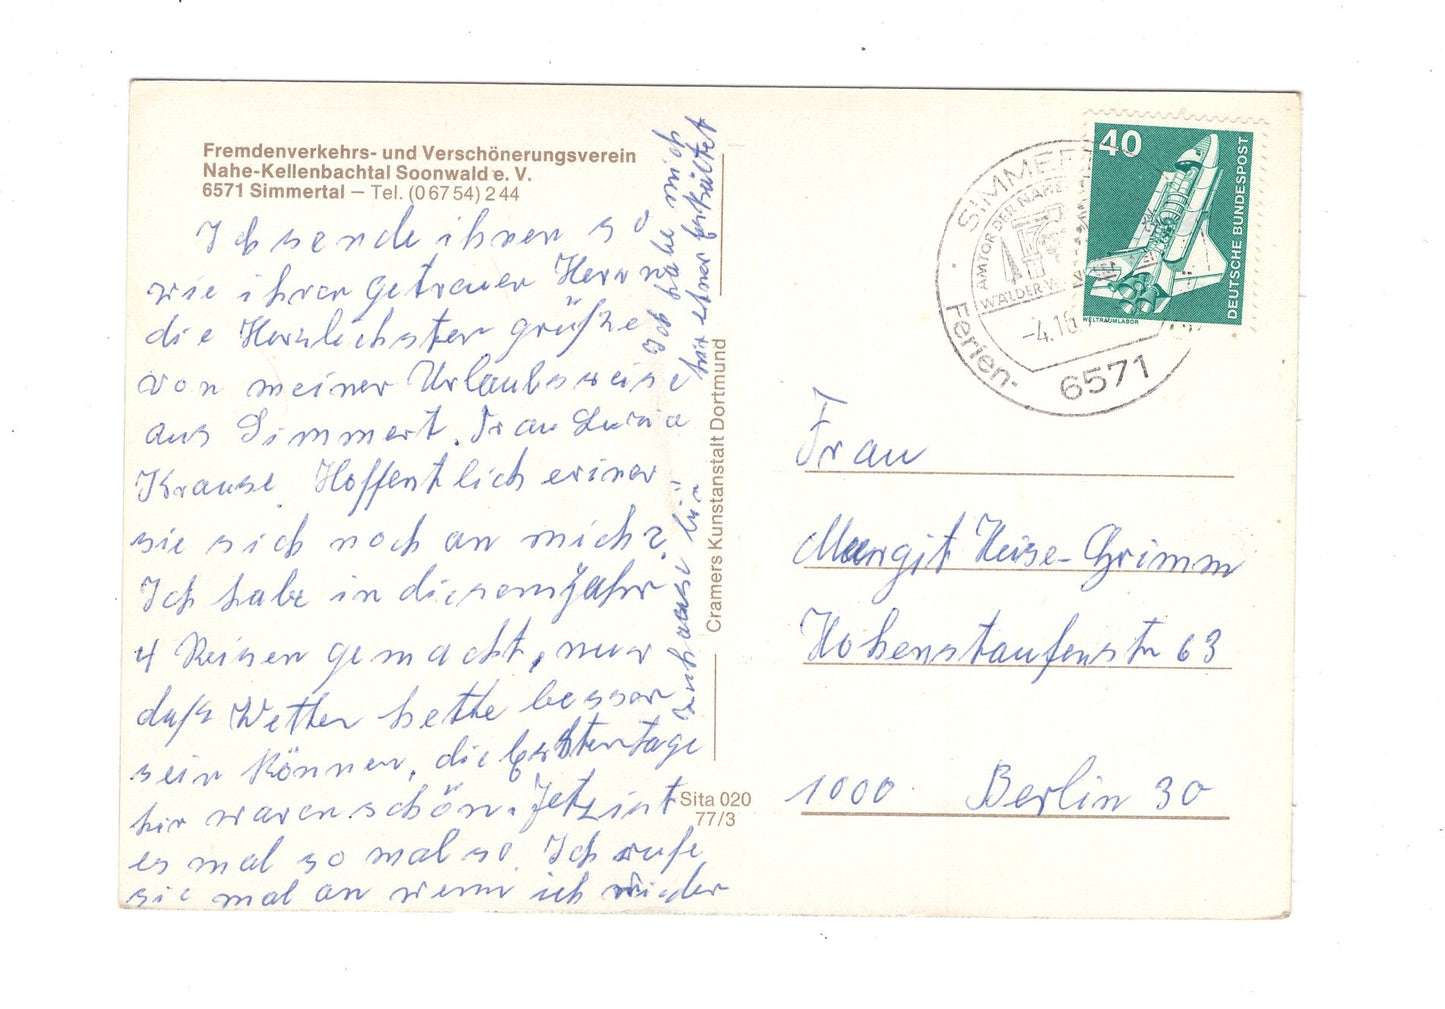 Fremdenverkehrs- und Verschönerungsverein
Nahe-Kellenbachtal Soonwald e. V.
6571 Simmertal — Tel. (0 67 54) 2 44
Ich sende ihnen so
wie ihren getrauen Herrn
die Herzlichsten grüße
von meiner Urlaubsreise
aus Simmert. Frau
Krause. Hoffentlich eriner
sie sich noch an mich?
Ich habe in diesem Jahr
4 Reisen gemacht, nur
daß Wetter hette besser
sein Können, die Ersten Tage
hir waren schön. Jetz ist
es mal so mal so. Ich rufe
sie mal an wenn ich wieder
zuhause bin
Ich habe mich
hir etwas erkältet
Cramers Kunstanstalt Dortmund
Sita 020
77/3
SIMMER
AMTOR DER NAHE
WÄLDER W
-4.10
Ferien-
6571
40
DEUTSCHE BUNDESPOST
WELTRAUMLABOR
Frau
Margit Heise-Grimm
Hohenstaufenstr 63
1000 Berlin 30